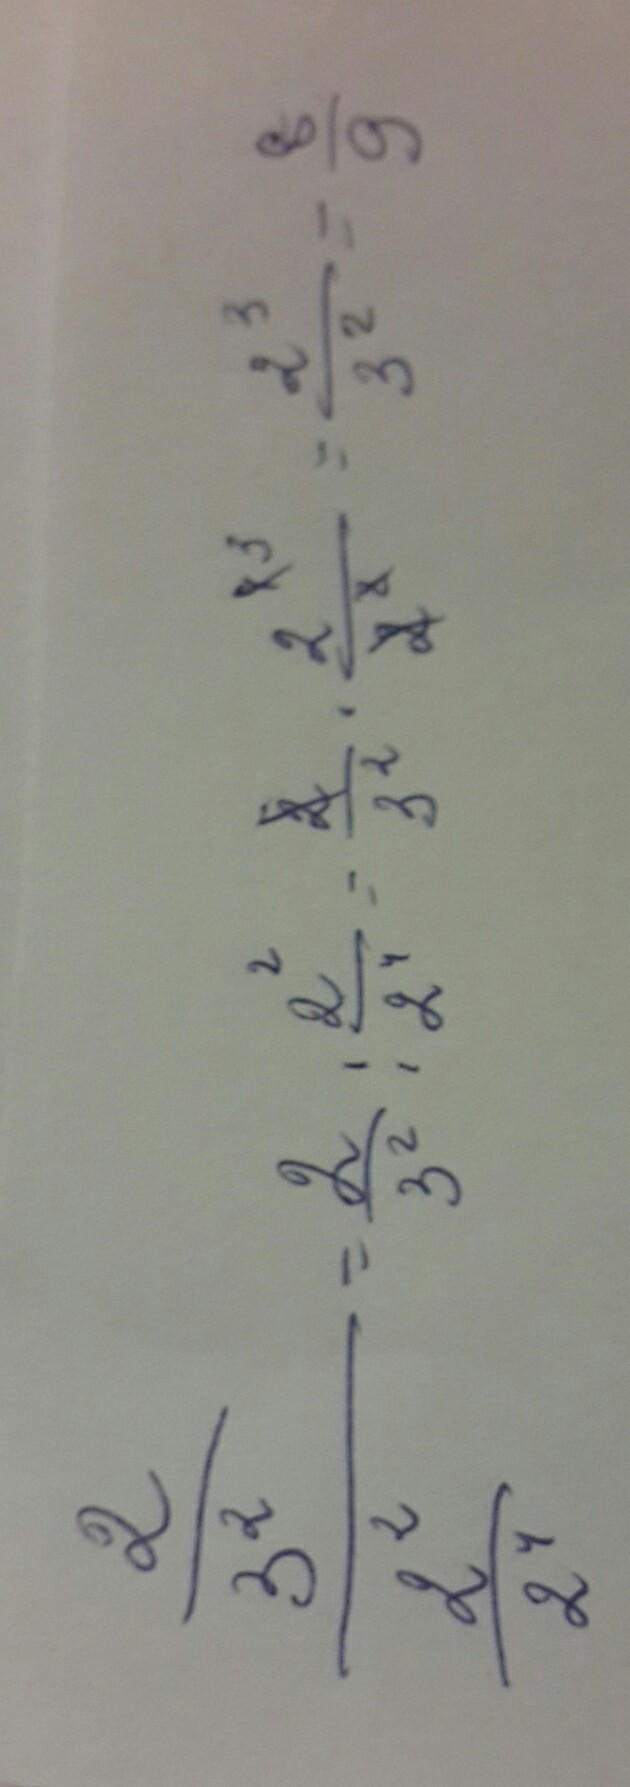 \frac{\frac{2}{3^2}}{\frac{2^2}{2^4}} = \frac{2}{3^2} : \frac{2^2}{2^4} = \frac{2}{3^2} \cdot \frac{2^{4 3}}{2^2} = \frac{2^3}{3^2} = \frac{8}{9}